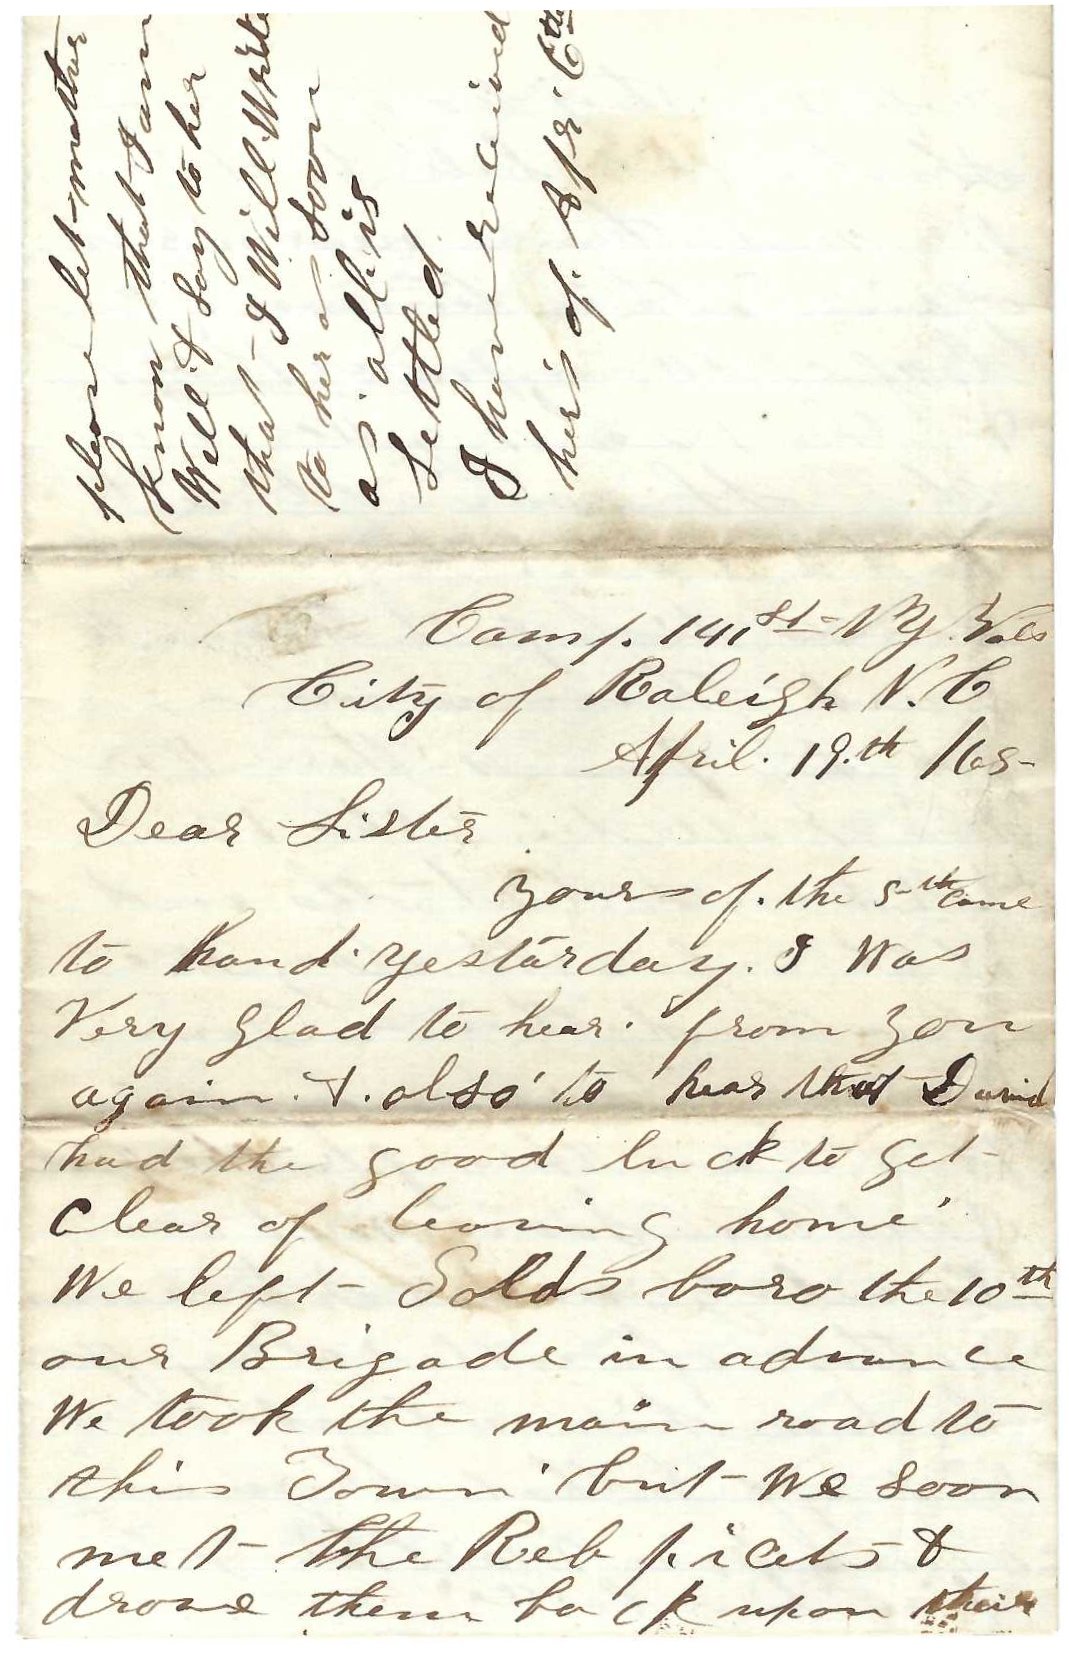 please let mother
know that I am
Well & Say to her
that I Will Write
to her as soon
as all is
Settled
I have received
hers of Apr 6th
Camp. 141st NY Vols
City of Raleigh N.C
April. 19.th /65
Dear Sister
Yours of. the 5th Came
to hand yestarday. I was
Very glad to hear from you
again. & also to hear that David
had the good luck to get
Clear of leaving home
We left Golds boro the 10th
our Brigade in advance
We took the main road to
this Town but We soon
met the Reb picets &
drove them back upon their